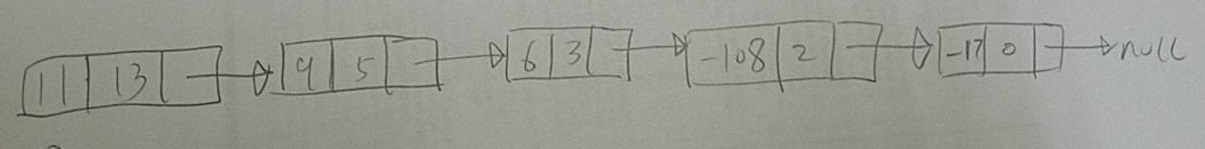 11 13 9 5 6 3 -108 2 -17 0 null